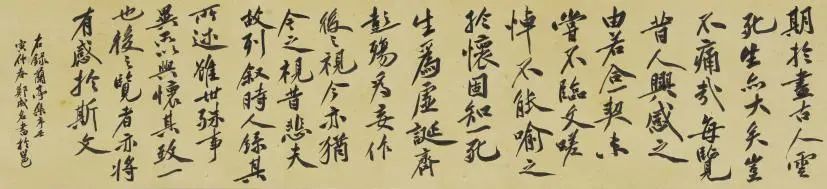 期於盡古人雲
死生亦大矣豈
不痛哉每覽
昔人興感之
由若合一契未
嘗不臨文嗟
悼不能喻之
於懷固知一死
生爲虛誕齊
彭殤为妄作
後之視今亦猶
今之視昔悲夫
故列敘時人錄其
所述雖世殊事
異所以興懷其致一
也後之覽者亦將
有感於斯文
右錄蘭亭集序壬
寅仲春鄭成書於